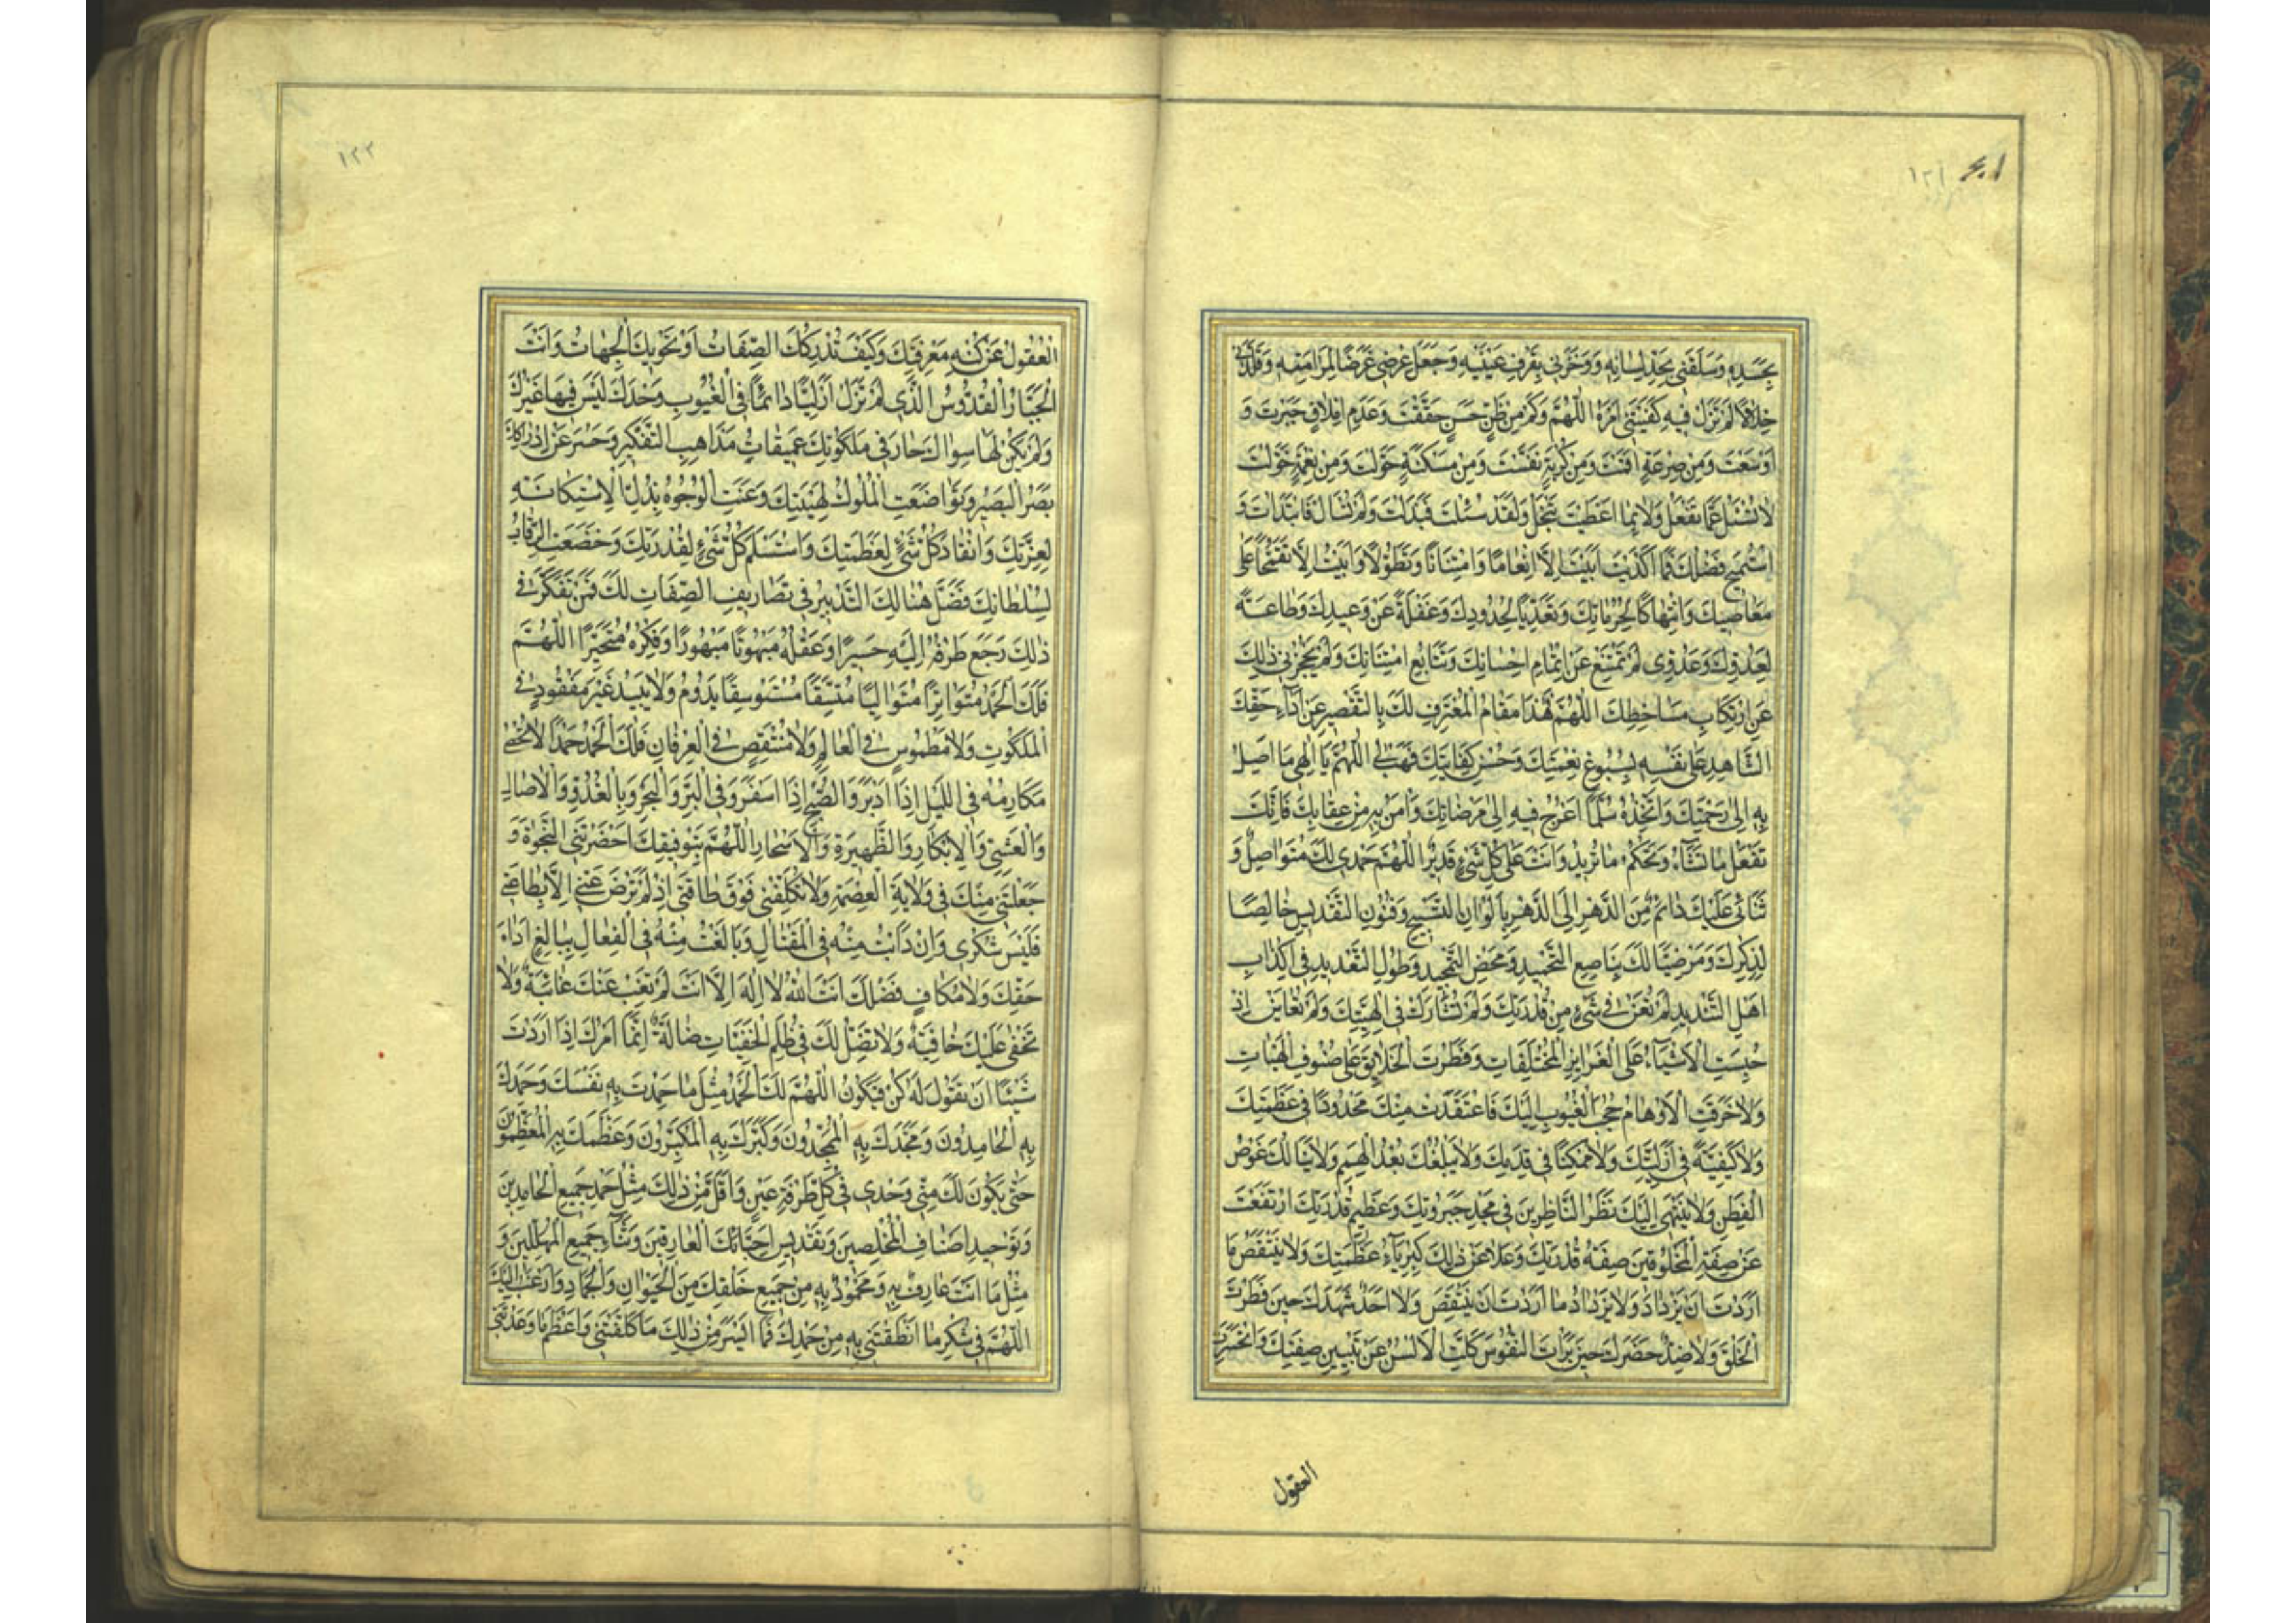 ١٢١
بِحَسَدِهِ وَسَلَقَنِي بِحَدِّ لِسَانِهِ وَوَخَزَنِي بِقَرْفِ عَيْنَيْهِ وَجَعَلَ عِرْضِي غَرَضًا لِمَرَامِيهِ وَقَلَّدَنِي
خِلَالًا لَمْ تَزَلْ فِيهِ كَفَيْتَنِي أَمْرَهُ اللّٰهُمَّ وَكَمْ مِنْ ظَنٍّ حَسَنٍ حَقَّقْتَ وَعَدَمِ إِمْلَاقٍ جَبَرْتَ وَ
أَوْسَعْتَ وَمِنْ صِرْعَةٍ أَقَمْتَ وَمِنْ كُرْبَةٍ نَفَّسْتَ وَمِنْ مَسْكَنَةٍ حَوَّلْتَ وَمِنْ نِعْمَةٍ خَوَّلْتَ
لَا تُسْئَلُ عَمَّا تَفْعَلُ وَلَا بِمَا أَعْطَيْتَ تَبْخَلُ وَلَقَدْ سُئِلْتَ فَبَذَلْتَ وَلَمْ تُسْأَلْ فَابْتَدَأْتَ وَ
اسْتُمِيحَ فَضْلُكَ فَمَا أَكْدَيْتَ أَبَيْتَ إِلَّا إِنْعَامًا وَامْتِنَانًا وَتَطَوُّلًا وَأَبَيْتُ إِلَّا تَقَحُّمًا عَلَى
مَعَاصِيكَ وَانْتِهَاكًا لِحُرُمَاتِكَ وَتَعَدِّيًا لِحُدُودِكَ وَغَفْلَةً عَنْ وَعِيدِكَ وَطَاعَةً
لِعَدُوِّكَ وَعَدُوِّي لَمْ تَمْتَنِعْ عَنْ إِتْمَامِ إِحْسَانِكَ وَتَتَابُعِ امْتِنَانِكَ وَلَمْ يَحْجُزْنِي ذٰلِكَ
عَنِ ارْتِكَابِ مَسَاخِطِكَ اللّٰهُمَّ فَهٰذَا مَقَامُ الْمُعْتَرِفِ لَكَ بِالتَّقْصِيرِ عَنْ أَدَاءِ حَقِّكَ
الشَّاهِدِ عَلَى نَفْسِهِ بِسُبُوغِ نِعْمَتِكَ وَحُسْنِ كِفَايَتِكَ فَهَبْ لِي اللّٰهُمَّ يَا إِلٰهِي مَا أَصِلُ
بِهِ إِلَى رَحْمَتِكَ وَأَتَّخِذُهُ سُلَّمًا أَعْرُجُ فِيهِ إِلَى مَرْضَاتِكَ وَآمَنُ بِهِ مِنْ عِقَابِكَ فَإِنَّكَ
تَفْعَلُ مَا تَشَاءُ وَتَحْكُمُ مَا تُرِيدُ وَأَنْتَ عَلَى كُلِّ شَيْءٍ قَدِيرٌ اللّٰهُمَّ حَمْدِي لَكَ مُتَوَاصِلٌ وَ
ثَنَائِي عَلَيْكَ دَائِمٌ مِنَ الدَّهْرِ إِلَى الدَّهْرِ بِأَلْوَانِ التَّسْبِيحِ وَفُنُونِ التَّقْدِيسِ خَالِصًا
لِذِكْرِكَ وَمَرْضِيًّا لَكَ بِنَاصِعِ التَّحْمِيدِ وَمَحْضِ التَّمْجِيدِ وَطُولِ التَّعْدِيدِ فِي إِكْذَابِ
أَهْلِ التَّنْدِيدِ لَمْ تُعَنْ فِي شَيْءٍ مِنْ قُدْرَتِكَ وَلَمْ تُشَارَكْ فِي إِلٰهِيَّتِكَ وَلَمْ تُعَايَنْ إِذْ
حُبِسَتِ الْأَشْيَاءُ عَلَى الْغَرَايِزِ الْمُخْتَلِفَاتِ وَفَطَرْتَ الْخَلَايِقَ عَلَى صُنُوفِ الْهَيْئَاتِ
وَلَا خَرَقَتِ الْأَوْهَامُ حُجُبَ الْغُيُوبِ إِلَيْكَ فَاعْتَقَدَتْ مِنْكَ مَحْدُودًا فِي عَظَمَتِكَ
وَلَا كَيْفِيَّةً فِي أَزَلِيَّتِكَ وَلَا مُمْكِنًا فِي قِدَمِكَ وَلَا يَبْلُغُكَ بُعْدُ الْهِمَمِ وَلَا يَنَالُكَ غَوْصُ
الْفِطَنِ وَلَا يَنْتَهِي إِلَيْكَ نَظَرُ النَّاظِرِينَ فِي مَجْدِ جَبَرُوتِكَ وَعَظِيمِ قُدْرَتِكَ ارْتَفَعَتْ
عَنْ صِفَةِ الْمَخْلُوقِينَ صِفَةُ قُدْرَتِكَ وَعَلَا عَنْ ذٰلِكَ كِبْرِيَاءُ عَظَمَتِكَ وَلَا يَنْتَقِصُ مَا
أَرَدْتَ أَنْ يَزْدَادَ وَلَا يَزْدَادُ مَا أَرَدْتَ أَنْ يَنْتَقِصَ وَلَا أَحَدٌ شَهِدَكَ حِينَ فَطَرْتَ
الْخَلْقَ وَلَا ضِدٌّ حَضَرَكَ حِينَ بَرَأْتَ النُّفُوسَ كَلَّتِ الْأَلْسُنُ عَنْ تَبْيِينِ صِفَتِكَ وَانْحَسَرَتِ
العقول
١٢٢
الْعُقُولُ عَنْ كُنْهِ مَعْرِفَتِكَ وَكَيْفَ تُدْرِكُكَ الصِّفَاتُ أَوْ تَحْوِيكَ الْجِهَاتُ وَأَنْتَ
الْجَبَّارُ الْقُدُّوسُ الَّذِي لَمْ تَزَلْ أَزَلِيًّا دَائِمًا فِي الْغُيُوبِ وَحْدَكَ لَيْسَ فِيهَا غَيْرُكَ
وَلَمْ يَكُنْ لَهَا سِوَاكَ حَارَ فِي مَلَكُوتِكَ عَمِيقَاتُ مَذَاهِبِ التَّفْكِيرِ وَحَسَرَ عَنْ إِدْرَاكِكَ
بَصَرُ الْبَصِيرِ وَتَوَاضَعَتِ الْمُلُوكُ لِهَيْبَتِكَ وَعَنَتِ الْوُجُوهُ بِذُلِّ الْاِسْتِكَانَةِ
لِعِزَّتِكَ وَانْقَادَ كُلُّ شَيْءٍ لِعَظَمَتِكَ وَاسْتَسْلَمَ كُلُّ شَيْءٍ لِقُدْرَتِكَ وَخَضَعَتِ الرِّقَابُ
لِسُلْطَانِكَ فَضَلَّ هُنَالِكَ التَّدْبِيرُ فِي تَصَارِيفِ الصِّفَاتِ لَكَ فَمَنْ تَفَكَّرَ فِي
ذٰلِكَ رَجَعَ طَرْفُهُ إِلَيْهِ حَسِيرًا وَعَقْلُهُ مَبْهُوتًا مَبْهُورًا وَفِكْرُهُ مُتَحَيِّرًا اللّٰهُمَّ
فَلَكَ الْحَمْدُ مُتَوَاتِرًا مُتَوَالِيًا مُتَّسِقًا مُسْتَوْسِقًا يَدُومُ وَلَا يَبِيدُ غَيْرَ مَفْقُودٍ فِي
الْمَلَكُوتِ وَلَا مَطْمُوسٍ فِي الْعَالَمِ وَلَا مُنْتَقِصٍ فِي الْعِرْفَانِ فَلَكَ الْحَمْدُ حَمْدًا لَا تُحْصَى
مَكَارِمُهُ فِي اللَّيْلِ إِذَا أَدْبَرَ وَالصُّبْحِ إِذَا أَسْفَرَ وَفِي الْبَرِّ وَالْبَحْرِ وَبِالْغُدُوِّ وَالْآصَالِ
وَالْعَشِيِّ وَالْإِبْكَارِ وَالظَّهِيرَةِ وَالْأَسْحَارِ اللّٰهُمَّ بِتَوْفِيقِكَ أَحْضَرْتَنِي النَّجْوَةَ وَ
جَعَلْتَنِي مِنْكَ فِي وَلَايَةِ الْعِصْمَةِ وَلَا تُكَلِّفْنِي فَوْقَ طَاقَتِي إِذْ لَمْ تَرْضَ عَنِّي إِلَّا بِطَاعَتِي
فَلَيْسَ شُكْرِي وَإِنْ دَأَبْتُ مِنْهُ فِي الْمَقَالِ وَبَالَغْتُ مِنْهُ فِي الْفِعَالِ بِبَالِغِ أَدَاءِ
حَقِّكَ وَلَا مُكَافٍ فَضْلَكَ أَنْتَ اللّٰهُ لَا إِلٰهَ إِلَّا أَنْتَ لَمْ تَغِبْ عَنْكَ غَائِبَةٌ وَلَا
تَخْفَى عَلَيْكَ خَافِيَةٌ وَلَا تَضِلُّ لَكَ فِي ظُلَمِ الْخَفِيَّاتِ ضَالَّةٌ إِنَّمَا أَمْرُكَ إِذَا أَرَدْتَ
شَيْئًا أَنْ تَقُولَ لَهُ كُنْ فَيَكُونُ اللّٰهُمَّ لَكَ الْحَمْدُ مِثْلَ مَا حَمِدْتَ بِهِ نَفْسَكَ وَحَمِدَكَ
بِهِ الْحَامِدُونَ وَمَجَّدَكَ بِهِ الْمُمَجِّدُونَ وَكَبَّرَكَ بِهِ الْمُكَبِّرُونَ وَعَظَّمَكَ بِهِ الْمُعَظِّمُونَ
حَتَّى يَكُونَ لَكَ مِنِّي وَحْدِي فِي كُلِّ طَرْفَةِ عَيْنٍ وَأَقَلَّ مِنْ ذٰلِكَ مِثْلُ حَمْدِ جَمِيعِ الْحَامِدِينَ
وَتَوْحِيدِ أَصْنَافِ الْمُخْلِصِينَ وَتَقْدِيسِ أَحِبَّائِكَ الْعَارِفِينَ وَثَنَاءِ جَمِيعِ الْمُهَلِّلِينَ وَ
مِثْلُ مَا أَنْتَ عَارِفٌ بِهِ وَمَحْمُودٌ بِهِ مِنْ جَمِيعِ خَلْقِكَ مِنَ الْحَيَوَانِ وَالْجَمَادِ وَأَرْغَبُ إِلَيْكَ
اللّٰهُمَّ فِي شُكْرِ مَا أَنْطَقْتَنِي بِهِ مِنْ حَمْدِكَ فَمَا أَيْسَرَ مِنْ ذٰلِكَ مَا كَلَّفْتَنِي وَأَعْظَمَ مَا وَعَدْتَنِي